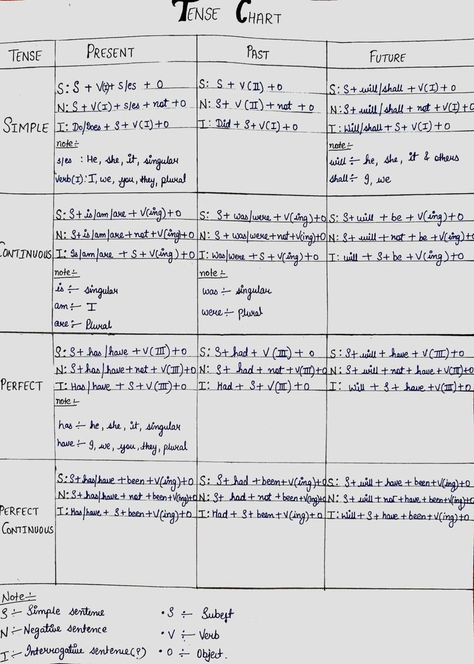 TENSE CHART
TENSE PRESENT PAST FUTURE
SIMPLE
S: S + V(I) + s/es + O
N: S + V(I) + s/es + not + O
I: Do/Does + S + V(I) + O
note:-
s/es : He, she, it, singular
Verb(I): I, we, you, they, plural
S: S + V(II) + O
N: S + V(II) + not + O
I: Did + S + V(I) + O
S: S + will/shall + V(I) + O
N: S + will/shall + not + V(I) + O
I: Will/shall + S + V(I) + O
note:-
will :- he, she, it & others
shall :- I, we
CONTINUOUS
S: S + is/am/are + V(ing) + O
N: S + is/am/are + not + V(ing) + O
I: Is/am/are + S + V(ing) + O
note:-
is :- singular
am :- I
are :- Plural
S: S + was/were + V(ing) + O
N: S + was/were + not + V(ing) + O
I: Was/were + S + V(ing) + O
note:-
was :- singular
were :- plural
S: S + will + be + V(ing) + O
N: S + will + not + be + V(ing) + O
I: will + S + be + V(ing) + O
PERFECT
S: S + has/have + V(III) + O
N: S + has/have + not + V(III) + O
I: Has/have + S + V(III) + O
note:-
has :- he, she, it, singular
have :- I, we, you, they, plural
S: S + had + V(III) + O
N: S + had + not + V(III) + O
I: Had + S + V(III) + O
S: S + will + have + V(III) + O
N: S + will + not + have + V(III) + O
I: Will + S + have + V(III) + O
PERFECT
CONTINUOUS
S: S + has/have + been + V(ing) + O
N: S + has/have + not + been + V(ing) + O
I: Has/have + S + been + V(ing) + O
S: S + had + been + V(ing) + O
N: S + had + not + been + V(ing) + O
I: Had + S + been + V(ing) + O
S: S + will + have + been + V(ing) + O
N: S + will + not + have + been + V(ing) + O
I: Will + S + have + been + V(ing) + O
Note:-
S :- Simple sentence
N :- Negative sentence
I :- Interrogative sentence(?)
• S :- Subejt
• V :- Verb
• O :- Object.